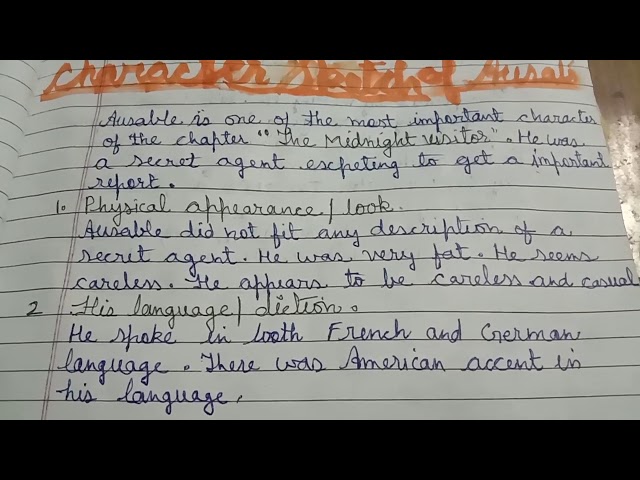 Character Sketch of Ausabl
Ausable is one of the most important character
of the chapter "The Midnight visitor". He was
a secret agent escpeting to get a important
report.
1. Physical appearance/look.
Ausable did not fit any description of a
secret agent. He was very fat. He seems
careless. He appears to be careless and casual
2 His language/diction.
He spoke in booth French and German
language. There was American accent in
his language.